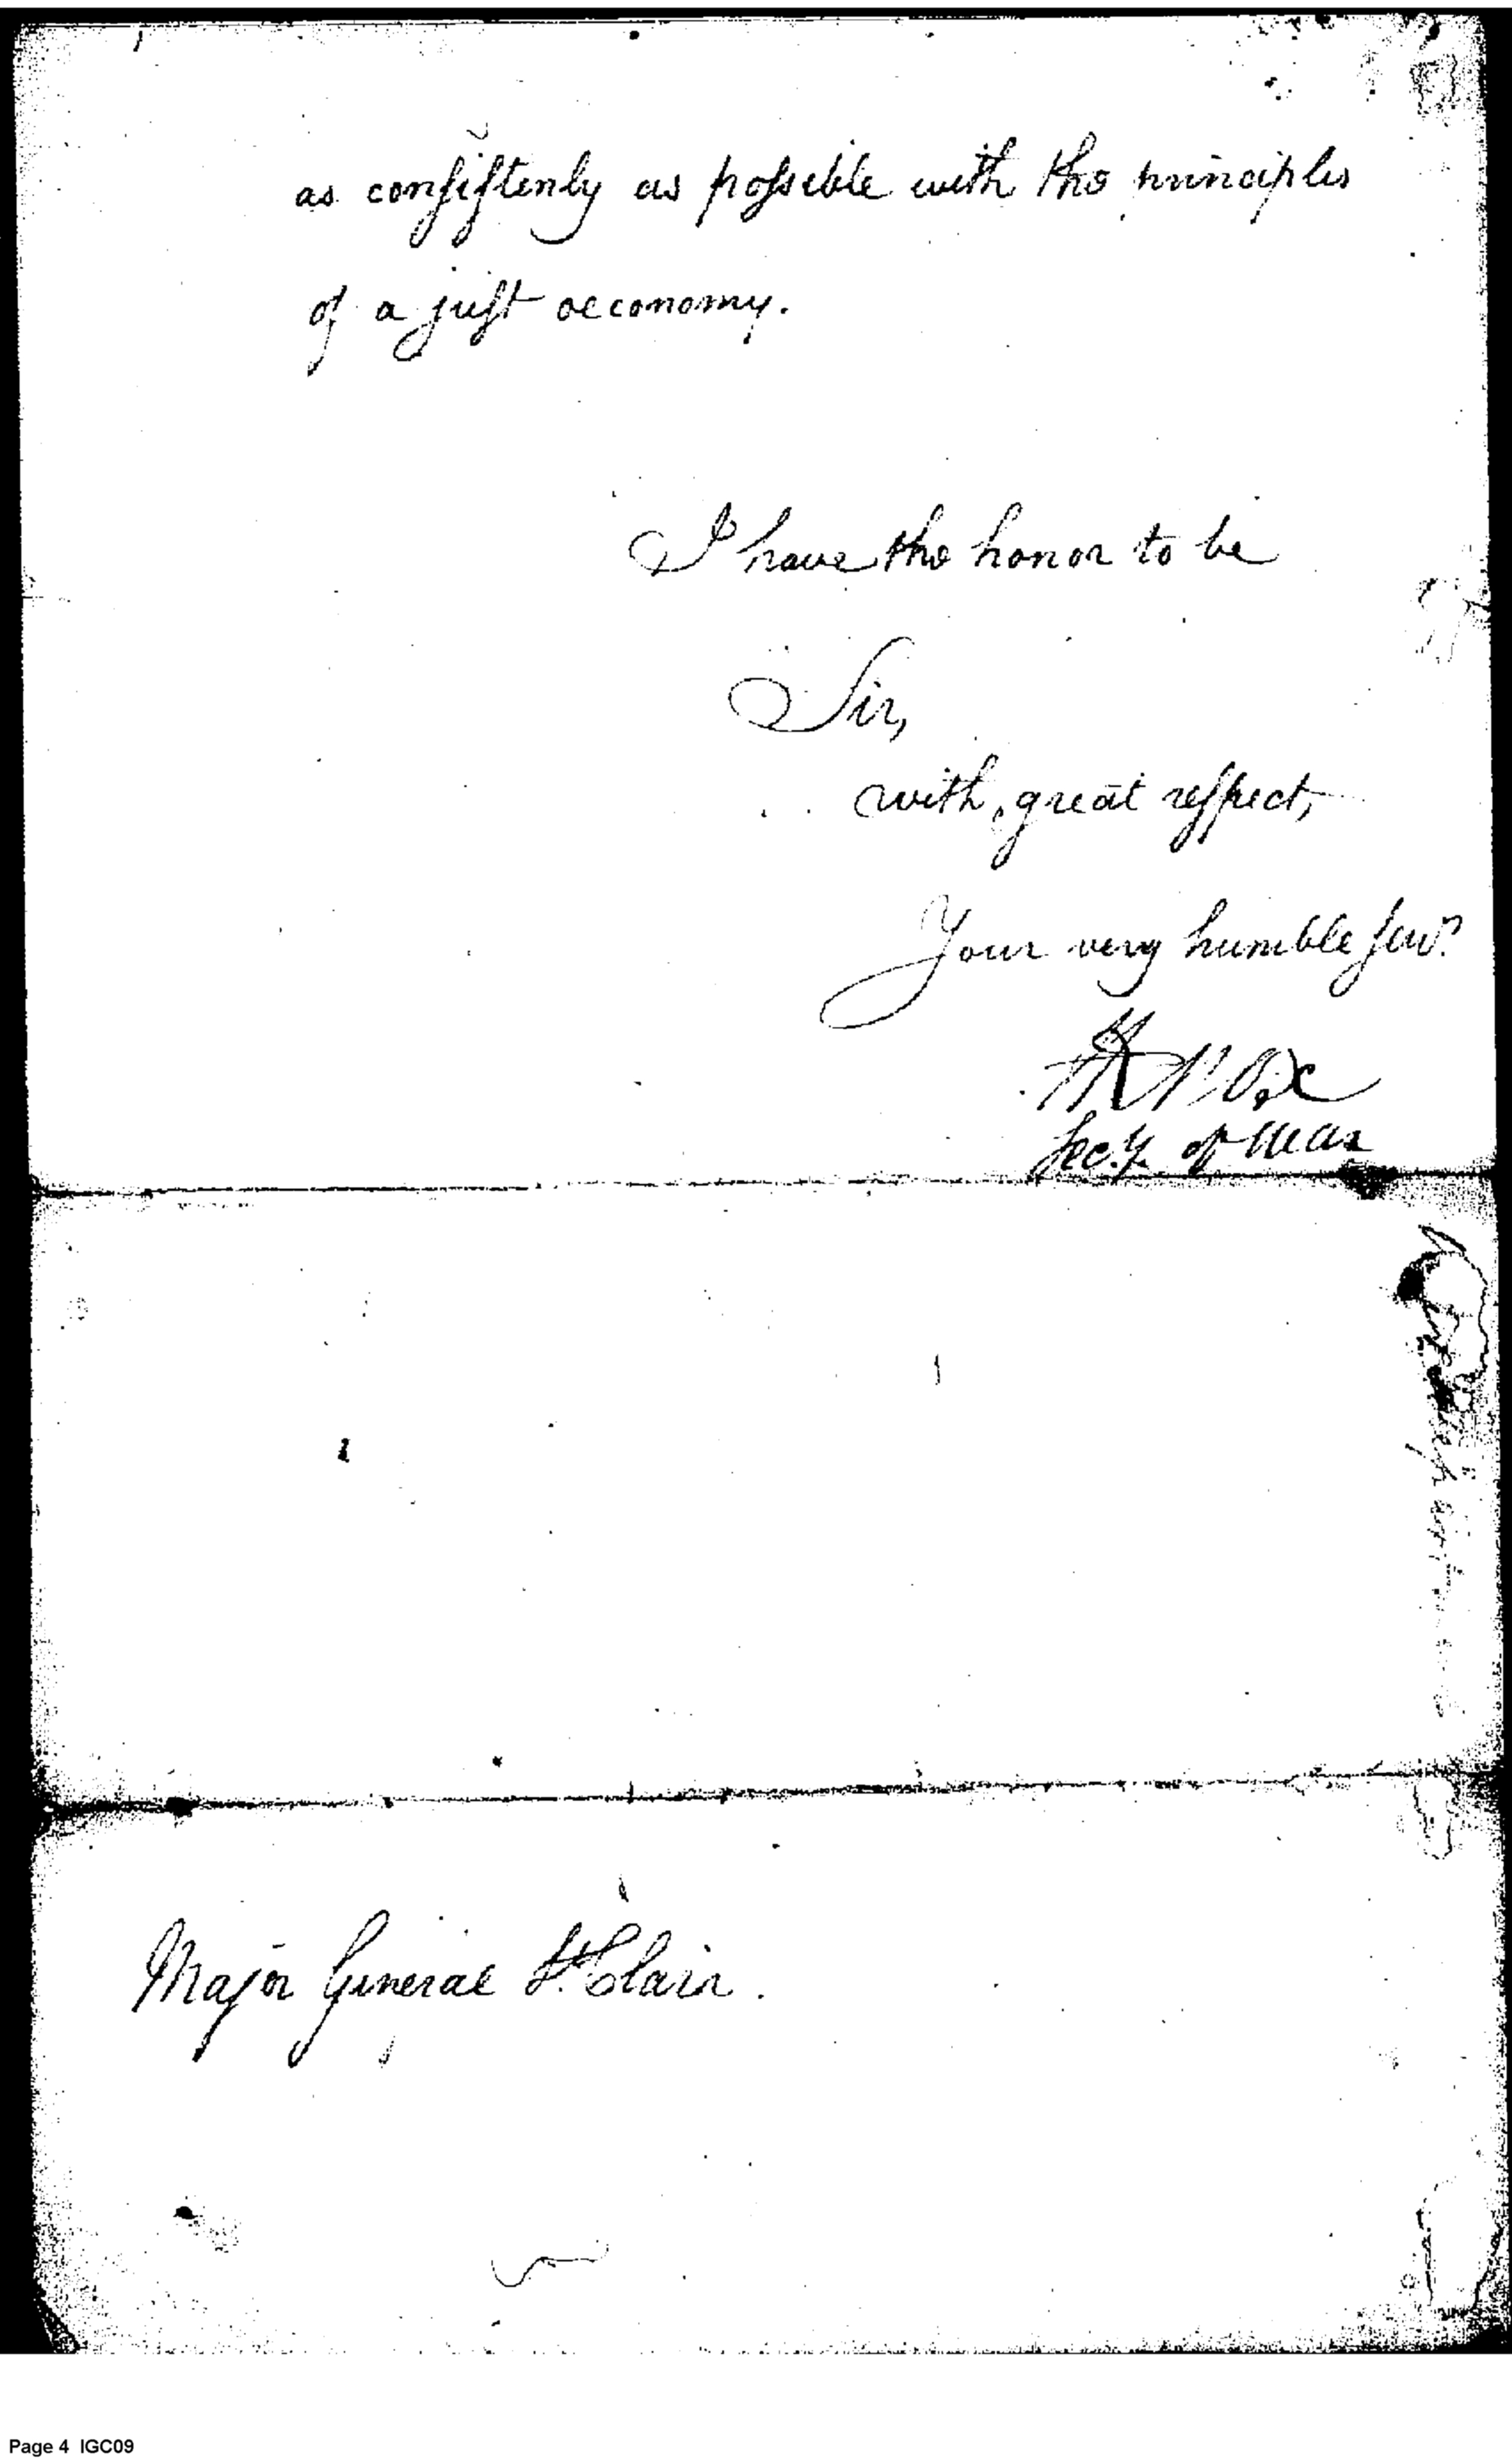 as consistenly as possible with the principles
of a just oeconomy.
I have the honor to be
Sir,
with great respect,
Your very humble Servt.
HKnox
Secy. of War
Major General St. Clair.
Page 4 IGC09